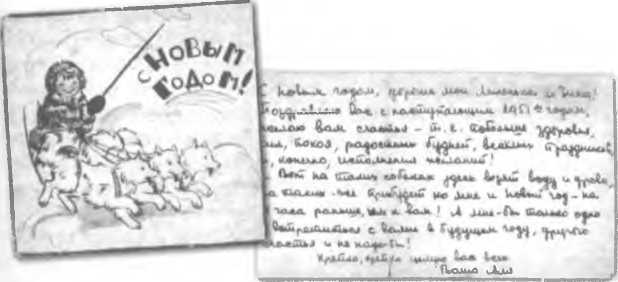 С НОВЫМ
ГОДОМ!
С новым годом, дорогие мои Лиленька и Зина!
Поздравляю Вас с наступающим 1951 годом,
желаю вам счастья - т.е. побольше здоровья,
покоя, радостных будней, весёлых праздников,
конечно, исполнения желаний!
Вот на таких собаках здесь возят воду и дрова,
на таких-же приедет ко мне и Новый год - на
часа раньше, чем к вам! А мне-бы только одно
встретиться с вами в будущем году, другого
счастья и не надо-бы!
Крепко, крепко целую вас всех
Ваша Аля